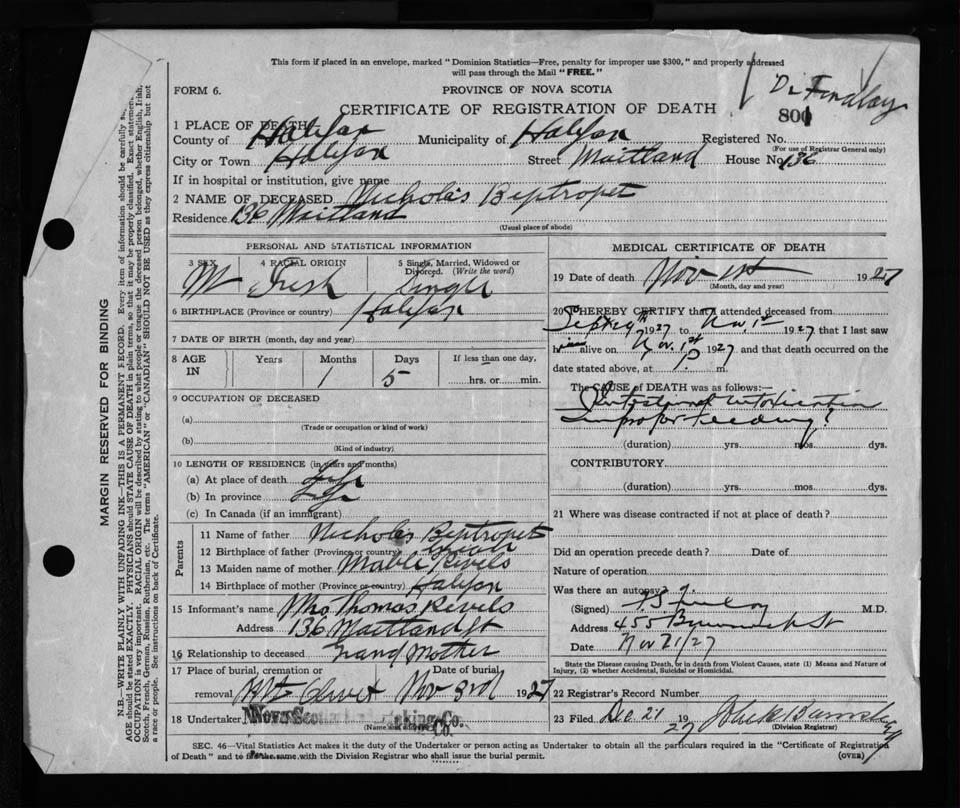 This form if placed in an envelope, marked "Dominion Statistics—Free, penalty for improper use $300," and properly addressed
will pass through the Mail "FREE."
Dr Findlay
FORM 6.
PROVINCE OF NOVA SCOTIA
CERTIFICATE OF REGISTRATION OF DEATH
801
1 PLACE OF DEATH
County of Halifax Municipality of Halifax Registered No.
(For use of Registrar General only)
City or Town Halifax Street Maitland House No. 136
If in hospital or institution, give name
2 NAME OF DECEASED Nicholas Beptropet
Residence 136 Maitland
(Usual place of abode)
PERSONAL AND STATISTICAL INFORMATION
3 SEX M
4 RACIAL ORIGIN Irish
5 Single, Married, Widowed or Divorced. (Write the word) Single
6 BIRTHPLACE (Province or country) Halifax
7 DATE OF BIRTH (month, day and year)
8 AGE IN Years Months 1 Days 5 If less than one day, hrs. or min.
9 OCCUPATION OF DECEASED
(a)
(Trade or occupation or kind of work)
(b)
(Kind of industry)
10 LENGTH OF RESIDENCE (in years and months)
(a) At place of death Life
(b) In province Life
(c) In Canada (if an immigrant)
Parents
11 Name of father Nicholas Beptropet
12 Birthplace of father (Province or country)
13 Maiden name of mother Mable Revels
14 Birthplace of mother (Province or country) Halifax
15 Informant's name Mrs Thomas Revels
Address 136 Maitland St
16 Relationship to deceased Grand Mother
17 Place of burial, cremation or removal Mt Olivet Date of burial Nov 3rd 1927
18 Undertaker Nova Scotia Undertaking Co.
(Name and address)
MEDICAL CERTIFICATE OF DEATH
19 Date of death Nov 1st 1927
(Month, day and year)
20 I HEREBY CERTIFY that I attended deceased from
Sept 1927 to Nov 1st 1927 that I last saw
him alive on Nov. 1st 1927 and that death occurred on the
date stated above, at 1. P m.
The CAUSE of DEATH was as follows:—
Intestinal intoxication
Improper Feeding?
(duration) yrs. mos. dys.
CONTRIBUTORY
(duration) yrs. mos. dys.
21 Where was disease contracted if not at place of death?
Did an operation precede death? Date of
Nature of operation
Was there an autopsy?
(Signed) M.D.
Address 455 Brunswick St
Date Nov 21/27
State the Disease causing Death, or in death from Violent Causes, state (1) Means and Nature of
Injury, (2) whether Accidental, Suicidal or Homicidal.
22 Registrar's Record Number
23 Filed Dec 21 1927
(Division Registrar)
SEC. 46—Vital Statistics Act makes it the duty of the Undertaker or person acting as Undertaker to obtain all the particulars required in the "Certificate of Registration
of Death" and to file the same with the Division Registrar who shall issue the burial permit.
(OVER)
MARGIN RESERVED FOR BINDING
N.B.—WRITE PLAINLY WITH UNFADING INK—THIS IS A PERMANENT RECORD. Every item of information should be carefully
AGE should be stated EXACTLY. PHYSICIANS should STATE CAUSE OF DEATH in plain terms, so that it may be properly classified. Exact statement
OCCUPATION is very important. RACIAL ORIGIN will be described by stating to what people or tongue the deceased person belonged, whether English, Irish,
Scotch, French, German, Russian, Ruthenian, etc. The terms "AMERICAN" or "CANADIAN" SHOULD NOT BE USED as they express citizenship but not
a race or people. See instructions on back of Certificate.